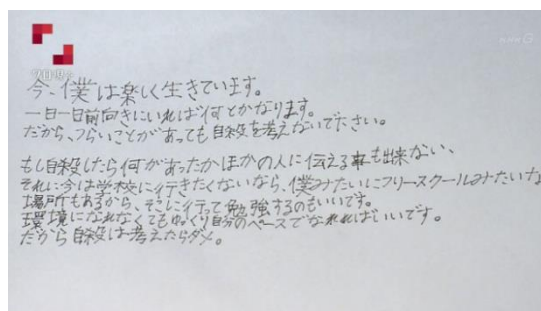 今、僕は楽しく生きています。
一日一日前向きにいれば何とかなります。
だから、つらいことがあっても自殺を考えないで下さい。
もし自殺したら何があったかほかの人に伝える事も出来ない、
それに今は学校に行きたくないなら、僕みたいにフリースクールみたいな
場所もあるから、そこに行って勉強するのもいいです。
環境になれなくてもゆっくり自分のペースでなれればいいです。
だから自殺は考えたらダメ。